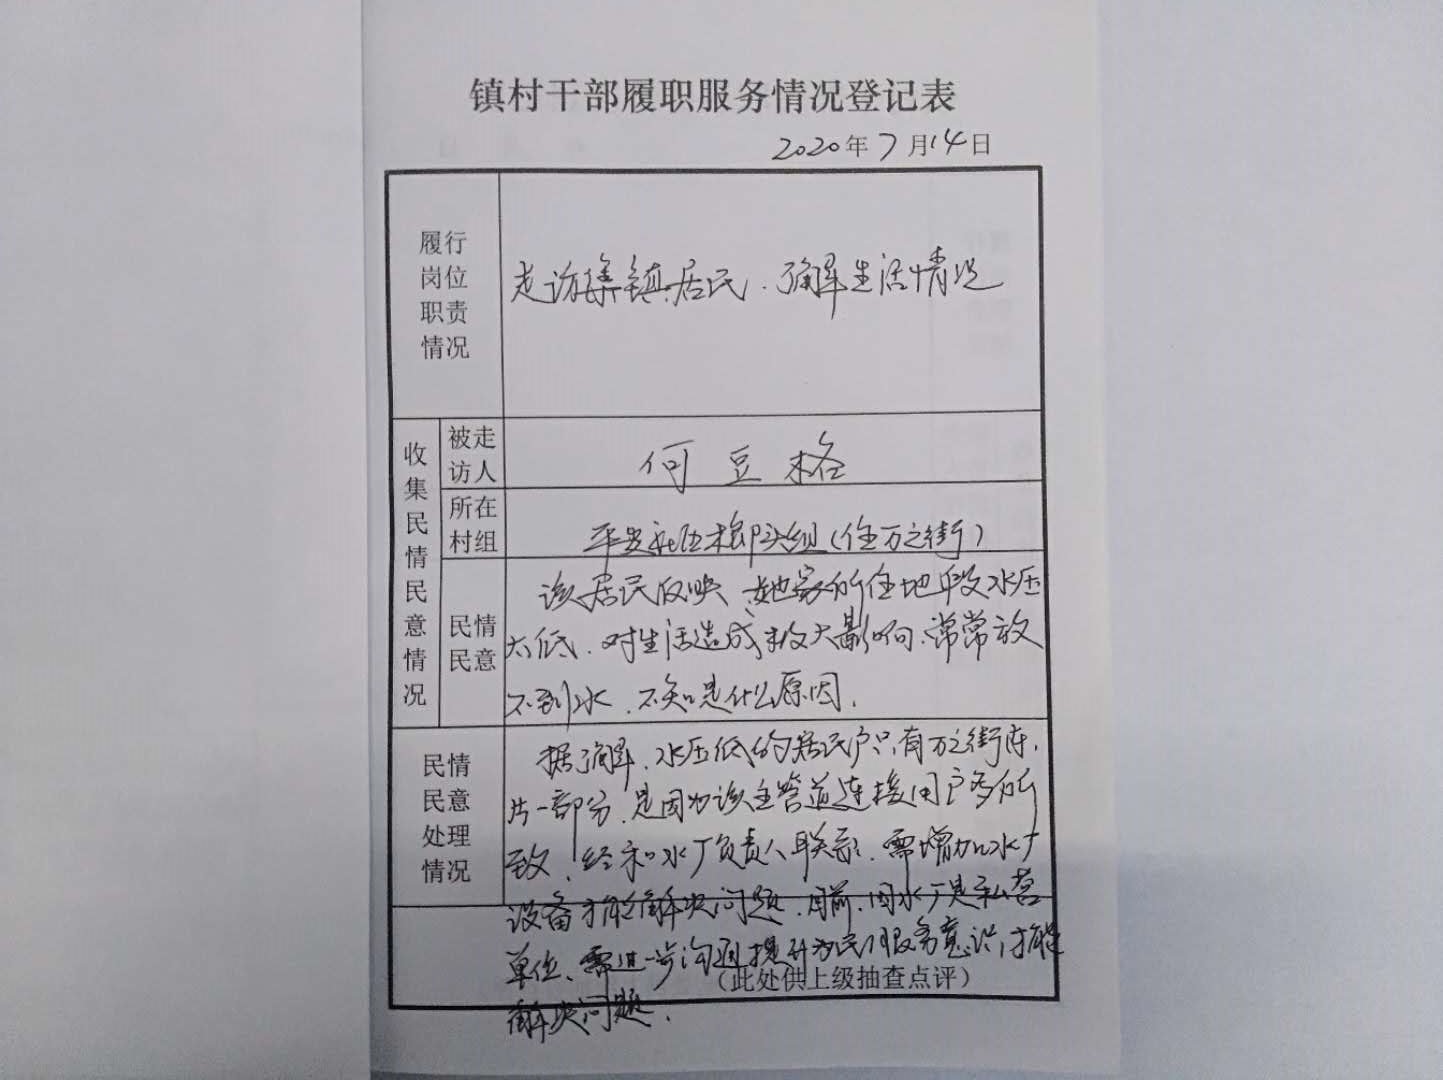 镇村干部履职服务情况登记表
2020年7月14日
履行
岗位
职责
情况
走访集镇居民、了解生活情况
收集民情民意情况
被走
访人
何豆格
所在
村组
平安社区榔头组(住万之街)
民情
民意
该居民反映,她家所住地段水压
太低,对生活造成极大影响,常常放
不到水,不知是什么原因.
民情
民意
处理
情况
据了解,水压低的居民户只有万之街
片一部分,是因为该主管道连接用户多所
致,经和水厂负责人联系,需增加水厂
设备才能解决问题,目前,因水厂是私营
单位、需进一步沟通提升为民服务意识,才能
解决问题.
(此处供上级抽查点评)